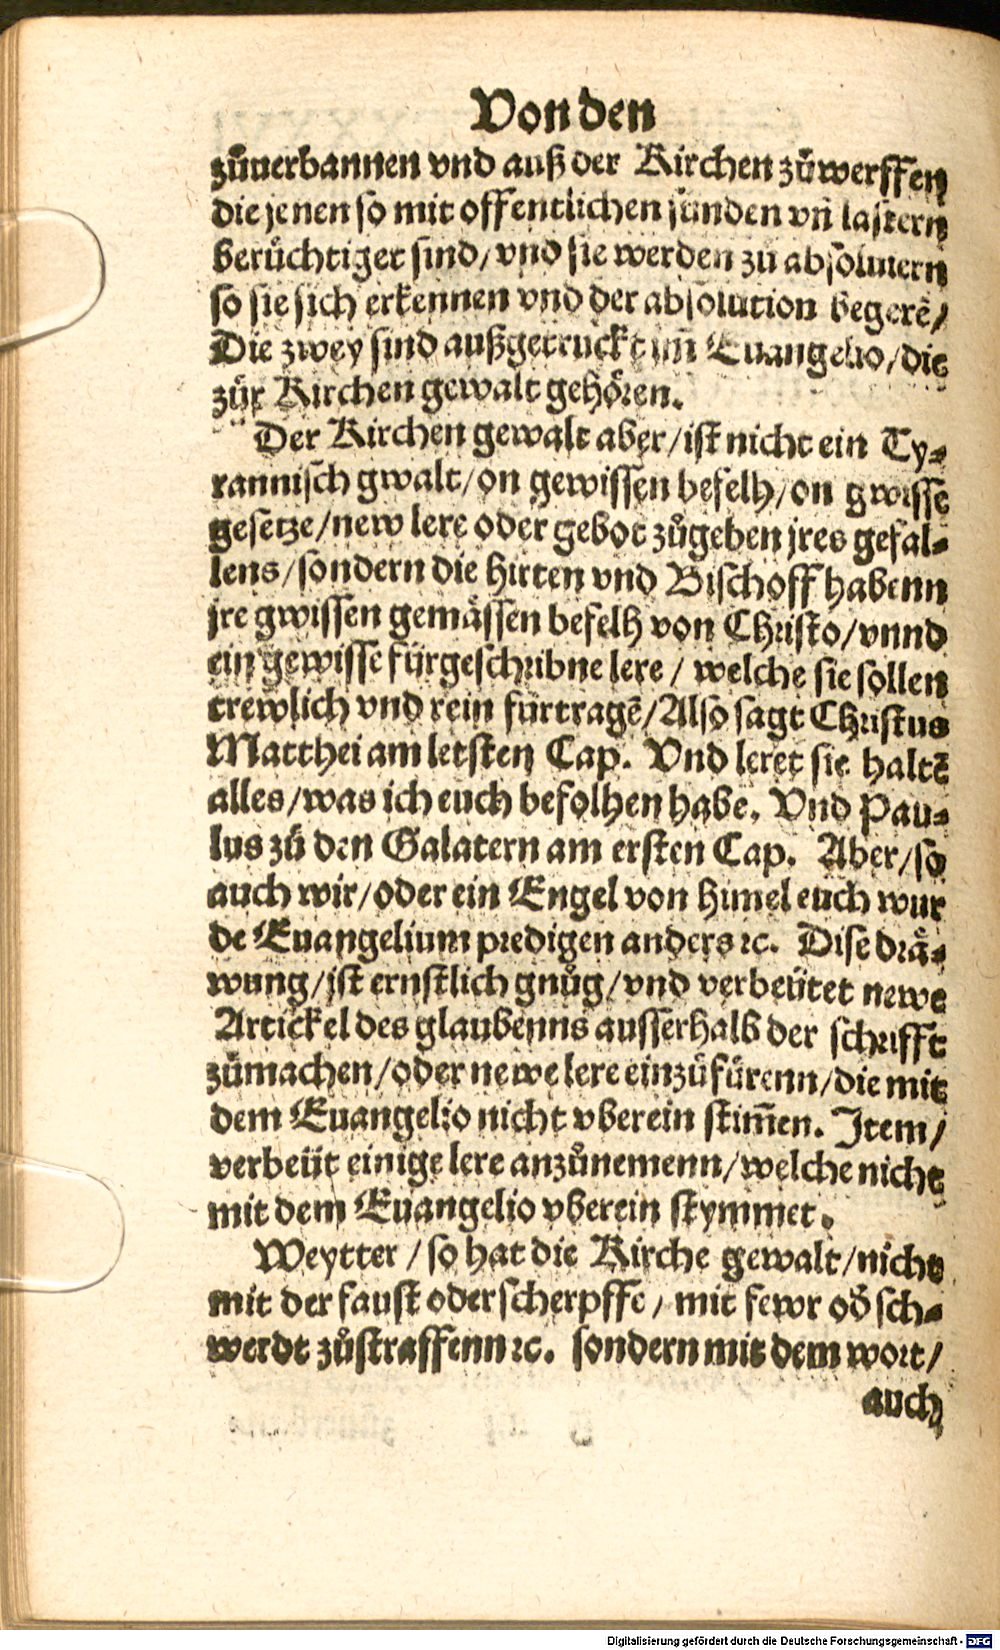 Von den
zůuerbannen vnd auß der Kirchen zůwerffen
die jenen so mit offentlichen sünden vñ lastern
berüchtiget sind/vnd sie werden zů absoluiern
so sie sich erkennen vnd der absolution begerẽ/
Die zwey sind außgetruckt im Euangelio/die
zůr Kirchen gewalt gehören.
Der Kirchen gewalt aber/ist nicht ein Ty-
rannisch gwalt/on gewissen befelh/on gwisse
gesetze/new lere oder gebot zůgeben jres gefal-
lens/sondern die Hirten vnd Bischoff habenn
jre gwissen gemässen befelh von Christo/vnnd
ein gewisse fürgeschribne lere/ welche sie sollen
trewlich vnd rein fürtragẽ/Also sagt Christus
Matthei am letsten Cap. Vnd leret sie haltẽ
alles/was ich euch befolhen habe. Vnd Pau-
lus zů den Galatern am ersten Cap. Aber/so
auch wir/oder ein Engel von himel euch wur
de Euangelium predigen anders ꝛc. Dise drä-
wung/ist ernstlich gnůg/vnd verbeütet newe
Artickel des glaubenns ausserhalb der schrifft
zůmachen/oder newe lere einzůfürenn/die mit
dem Euangelio nicht vberein stim̃en. Item/
verbeüt einige lere anzůnemenn/welche nicht
mit dem Euangelio vberein stymmet.
Weytter/so hat die Kirche gewalt/nicht
mit der faust oder scherpffe/ mit fewr od̕ sch-
werdt zůstraffenn ꝛc. sondern mit dem wort/
auch
Digitalisierung gefördert durch die Deutsche Forschungsgemeinschaft - DFG